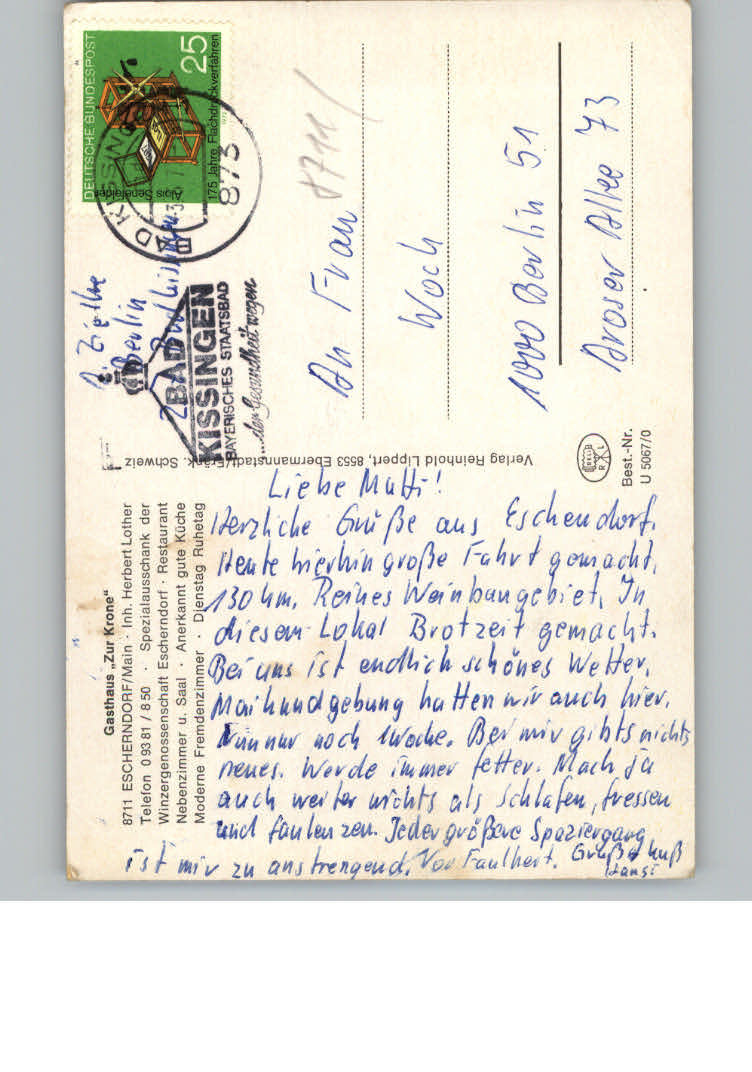 Gasthaus „Zur Krone"
8711 ESCHERNDORF/Main · Inh. Herbert Lother
Telefon 0 93 81 / 8 50 · Spezialausschank der
Winzergenossenschaft Escherndorf · Restaurant
Nebenzimmer u. Saal · Anerkannt gute Küche
Moderne Fremdenzimmer · Dienstag Ruhetag
Liebe Mutti!
Herzliche Grüße aus Eschendorf.
Heute hierhin große Fahrt gemacht.
130 km. Reines Weinbaugebiet. In
diesem Lokal Brotzeit gemacht.
Bei uns ist endlich schönes Wetter.
Maikundgebung hatten wir auch hier.
nun nur noch 1 Woche. Bei mir gibts nichts
neues. Werde immer fetter. Mach ja
auch weiter nichts als schlafen, fressen
und faulenzen. Jeder größere Spaziergang
ist mir zu anstrengend. Vor Faulheit. Gruß + Kuß
Hansi
Verlag Reinhold Lippert, 8553 Ebermannstadt/Fränk. Schweiz
R L
Best.-Nr.
U 5067/0
Ziethe
Berlin
z. Z. Bad Kissingen
BAD
KISSINGEN
BAYERISCHES STAATSBAD
...der Gesundheit wegen
873
BAD KISSINGEN
DEUTSCHE BUNDESPOST
25
Alois Senefelder
175 Jahre Flachdruckverfahren
8711/
An Frau
Woch
1000 Berlin 51
Aroser Allee 73